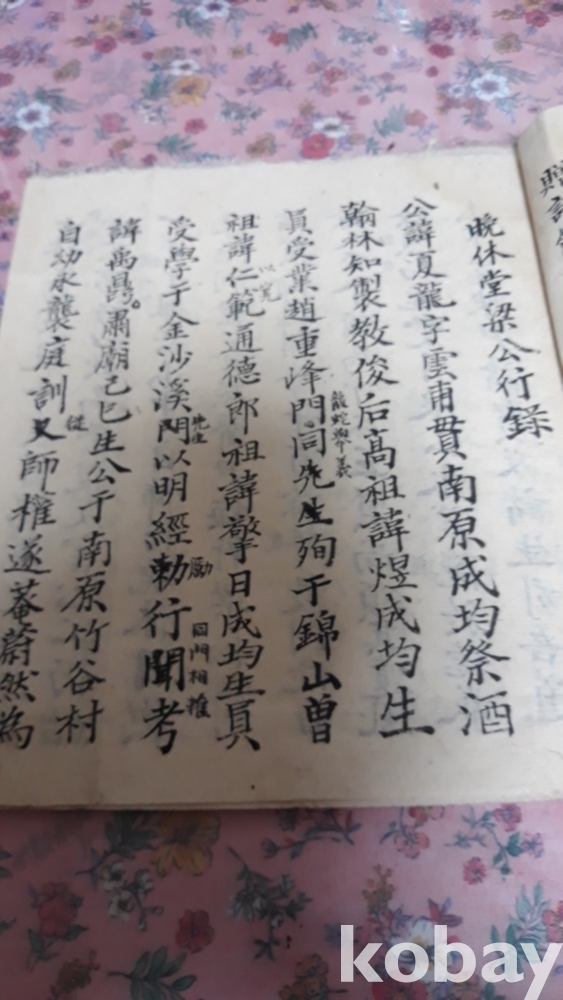 晩休堂梁公行錄
公諱夏龍字雲甫貫南原成均祭酒
翰林知製教俊后高祖諱煜成均生
員受業趙重峰門同先生殉于錦山曽
龍蛇擧義
祖諱仁範通德郎祖諱擎日成均生員
以寬
受學于金沙溪門以明經勅行聞考
先生
勵
同門相推
諱禹 肅廟己巳生公于南原竹谷村
自幼永襲庭訓又師權遂菴蔚然為
從
kobay